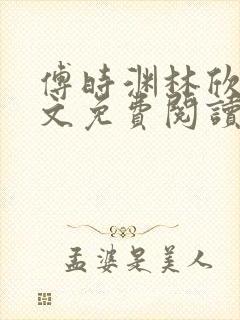 傅时渊林欣
文免費閱讀
孟婆是美人